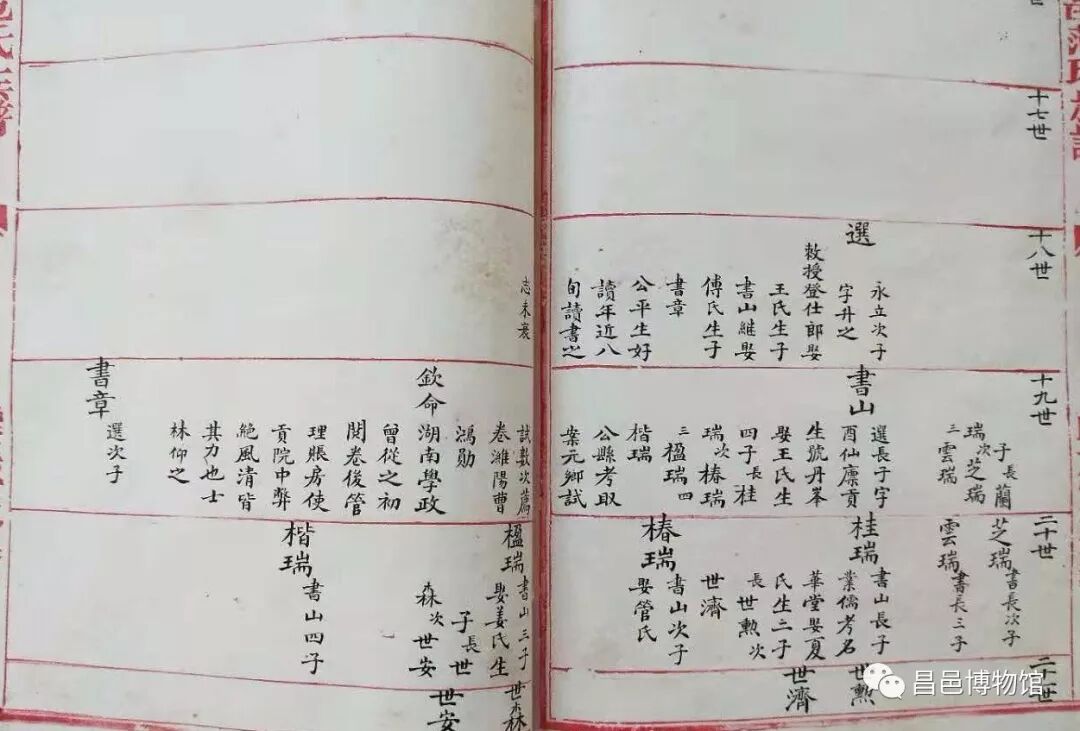 十七世
十八世
選
永立次子
字升之
敕授登仕郎娶
王氏生子
書山維娶
傅氏生子
書章
公平生好
讀年近八
旬讀書之
志未衰
十九世
子長蘭
瑞次芝瑞
三雲瑞
書山
選長子字
酉仙廪貢
生號丹峯
娶王氏生
四子長桂
瑞次椿瑞
三楹瑞四
楷瑞
公縣考取
案元鄉試
試數次薦
卷濰陽曹
鴻勛
欽命湖南學政
曾從之初
閱卷後管
理賬房使
貢院中弊
絕風清皆
其力也士
林仰之
書章
選次子
二十世
芝瑞書長次子
雲瑞書長三子
桂瑞
書山長子
業儒考名
華堂娶夏
氏生二子
長世勲次
世濟
椿瑞
書山次子
娶管氏
楹瑞書山三子
娶姜氏生
子長世
森次世安
楷瑞
書山四子
二十一世
世勲
世濟
世森
世安
昌邑博物馆